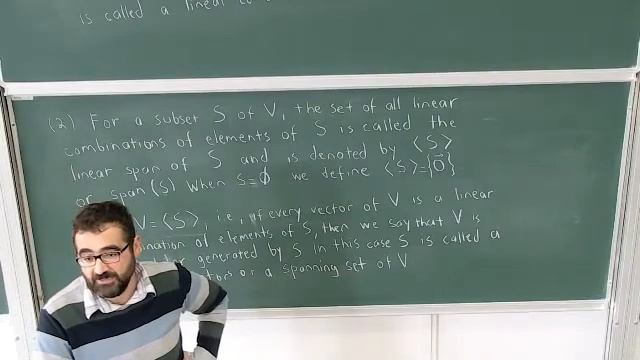 is called a linear
(2) For a subset S of V, the set of all linear
combinations of elements of S is called the
linear span of S and is denoted by ⟨S⟩
or span(S) When S=∅ we define ⟨S⟩={0⃗}
V=⟨S⟩, i.e., if every vector of V is a linear
nation of elements of S, then we say that V is
generated by S In this case S is called a
tors or a spanning set of V